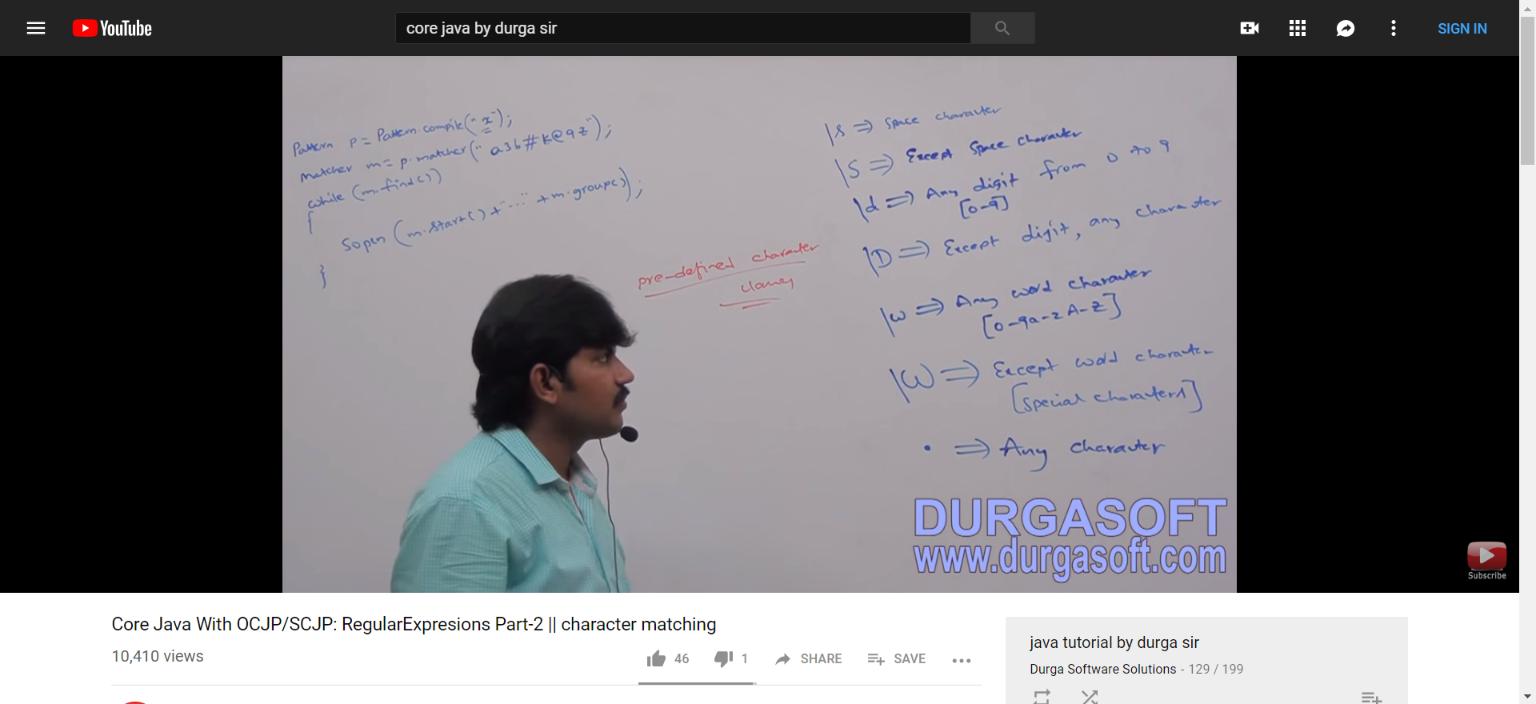 YouTube
core java by durga sir
SIGN IN
Pattern p = Pattern.compile("x");
matcher m = p.matcher("a3b#k@9z");
while (m.find())
{
Sopln (m.start() + "...." + m.group());
}
pre-defined character
classes
\s ⇒ Space character
\S ⇒ Except Space character
\d ⇒ Any digit from 0 to 9
[0-9]
\D ⇒ Except digit, any character
\w ⇒ Any word character
[0-9a-zA-Z]
\W ⇒ Except word character
[Special characters]
. ⇒ Any character
DURGASOFT
www.durgasoft.com
Subscribe
Core Java With OCJP/SCJP: RegularExpresions Part-2 || character matching
10,410 views
46
1
SHARE
SAVE
java tutorial by durga sir
Durga Software Solutions - 129 / 199